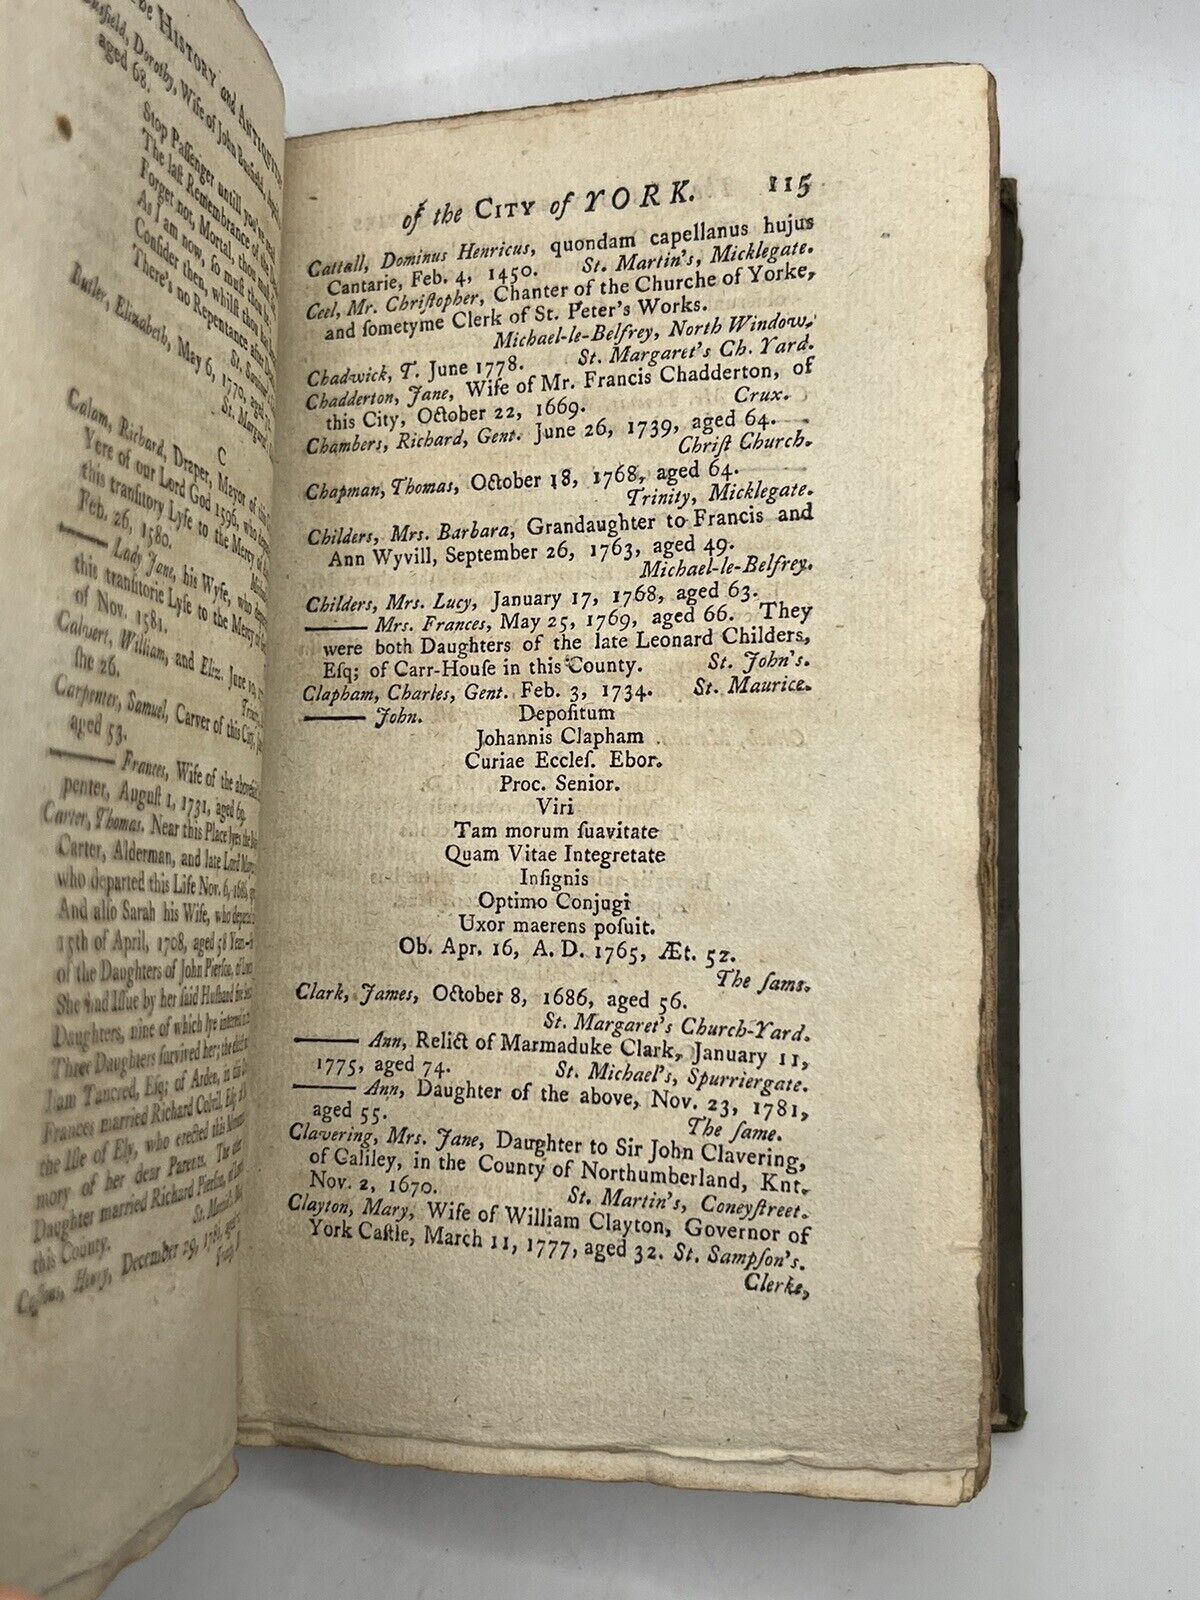 The HISTORY and ANTIQUITIES
Dorothy, Wife of John
aged 68.
Stop Paſſenger untill you've read
The laſt Remembrance of the
Forget not, Mortal, thou
As I am now, ſo muſt thou be,
Conſider then, whilſt thou
There's no Repentance after
Butler, Elizabeth, May 6, 1770, aged
St.
C
Calam, Richard, Draper, Mayor of this
Yere of our Lord God 1596, who
this tranſitory Lyfe to the Mercy of
Feb. 26, 1580.
—— Lady Jane, his Wyfe, who
this tranſitorie Lyfe to the Mercy of
of Nov. 1581.
Calvert, William, and Eliz. June 10,
ſhe 26.
Carpenter, Samuel, Carver of this City,
aged 53.
—— Frances, Wife of the
penter, Auguſt 1, 1731, aged 69.
Carter, Thomas. Near this Place lyes the
Carter, Alderman, and late Lord
who departed this Life Nov. 6, 1686,
And alſo Sarah his Wife, who
15th of April, 1708, aged 58
of the Daughters of John Pierſon, of
She had Iſſue by her ſaid Husband
Daughters, nine of which lye
Three Daughters ſurvived her; the
Tancred, Eſq; of Arden, in
Frances married Richard Colvil, Eſq;
the Iſle of Ely, who erected this
mory of her dear Parents.
Daughter married Richard Pierſon,
this County.
Henry, December 29, 1781,
of the CITY of YORK. 115
Cattall, Dominus Henricus, quondam capellanus hujus
Cantarie, Feb. 4, 1450. St. Martin's, Micklegate.
Ceel, Mr. Chriſtopher, Chanter of the Churche of Yorke,
and ſometyme Clerk of St. Peter's Works.
Michael-le-Belfrey, North Window.
Chadwick, T. June 1778. St. Margaret's Ch. Yard.
Chadderton, Jane, Wife of Mr. Francis Chadderton, of
this City, October 22, 1669. Crux.
Chambers, Richard, Gent. June 26, 1739, aged 64.
Chriſt Church.
Chapman, Thomas, October 18, 1768, aged 64.
Trinity, Micklegate.
Childers, Mrs. Barbara, Grandaughter to Francis and
Ann Wyvill, September 26, 1763, aged 49.
Michael-le-Belfrey.
Childers, Mrs. Lucy, January 17, 1768, aged 63.
—— Mrs. Frances, May 25, 1769, aged 66. They
were both Daughters of the late Leonard Childers,
Eſq; of Carr-Houſe in this County. St. John's.
Clapham, Charles, Gent. Feb. 3, 1734. St. Maurice.
—— John. Depoſitum
Johannis Clapham
Curiae Eccleſ. Ebor.
Proc. Senior.
Viri
Tam morum ſuavitate
Quam Vitae Integretate
Inſignis
Optimo Conjugi
Uxor maerens poſuit.
Ob. Apr. 16, A. D. 1765, Æt. 52.
The ſams.
Clark, James, October 8, 1686, aged 56.
St. Margaret's Church-Yard.
—— Ann, Relict of Marmaduke Clark, January 11,
1775, aged 74. St. Michael's, Spurriergate.
—— Ann, Daughter of the above, Nov. 23, 1781,
aged 55. The ſame.
Clavering, Mrs. Jane, Daughter to Sir John Clavering,
of Caliley, in the County of Northumberland, Knt.
Nov. 2, 1670. St. Martin's, Coneyſtreet.
Clayton, Mary, Wife of William Clayton, Governor of
York Caſtle, March 11, 1777, aged 32. St. Sampſon's.
Clerke,